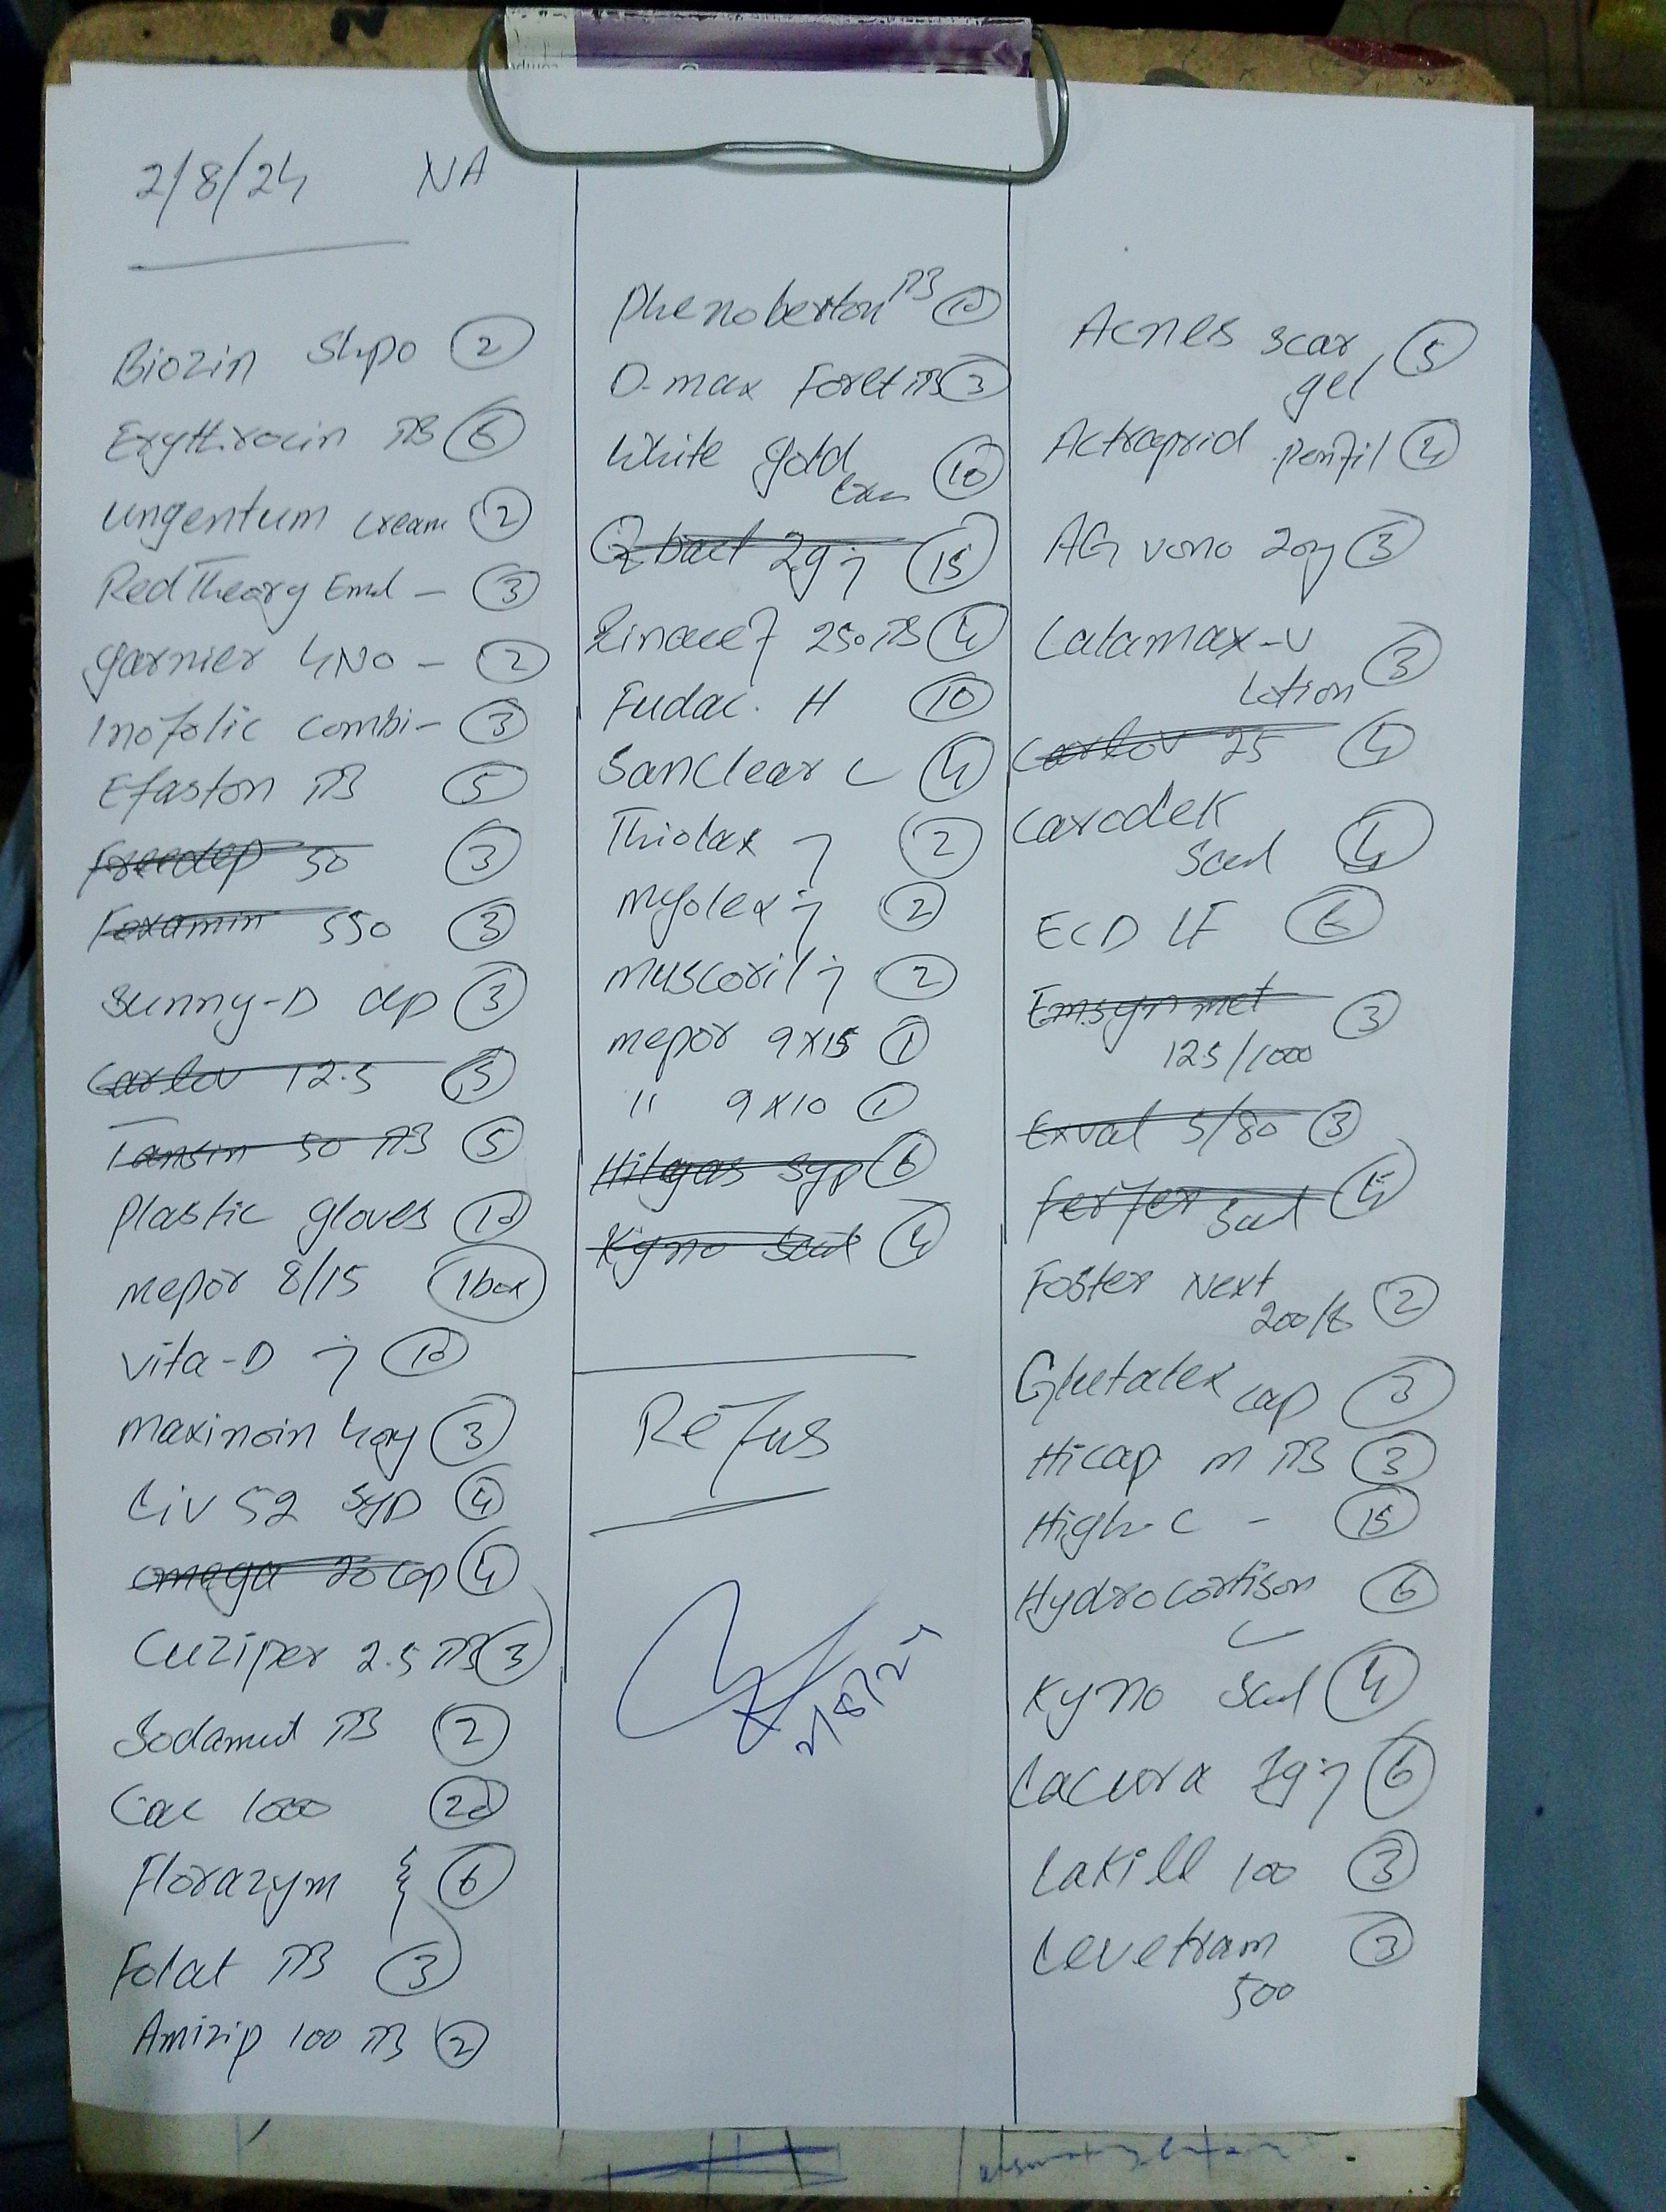 2/8/24 NA
Biozin Shpo 2
Erythrocin TB 6
Ungentum cream 2
Red Theory Emul - 3
Garnier 4NO - 2
Inofolic combi - 3
Efaston TB 5
Freedep 50 3
Foxamin 550 3
Sunny-D cap 3
Carlov 12.5 5
Tansin 50 TB 5
Plastic gloves 10
mepor 8/15 1 box
Vita-D inj 10
Maxinoin 40mg 3
Liv 52 Syp 4
omega 20 cap 4
Cuziper 2.5 TB 3
Sodamint TB 2
Cac 1000 20
Florazym 6
Folat TB 3
Amizip 100 TB 2
Phenoberton TB 10
D-max Foret TB 3
White gold 10
Qbact 2g inj 15
Zinacef 250 TB 4
Fudac. H 10
Sanclear C 4
Thiolax inj 2
Myolex inj 2
Muscoril inj 2
mepor 9x15 1
" 9x10 1
Hilgas Syp 6
Kyno Scut 4
Refus
2/8/24
Acnes scar 5
gel
Actraprid penfil 4
AG vono 20mg 3
Calamax-V 3
Lotion
Carlov 25 4
Carodek
4
ECD LF 6
Emsyn met 3
12.5/1000
Exval 5/80 3
Ferfer
Foster Next 2
200/6
Glutalex cap 3
Hicap M TB 3
High-C - 15
Hydrocortison 6
C
Kyno 4
Cacvora 7g inj 6
Lakill 100 3
Levetram 3
500